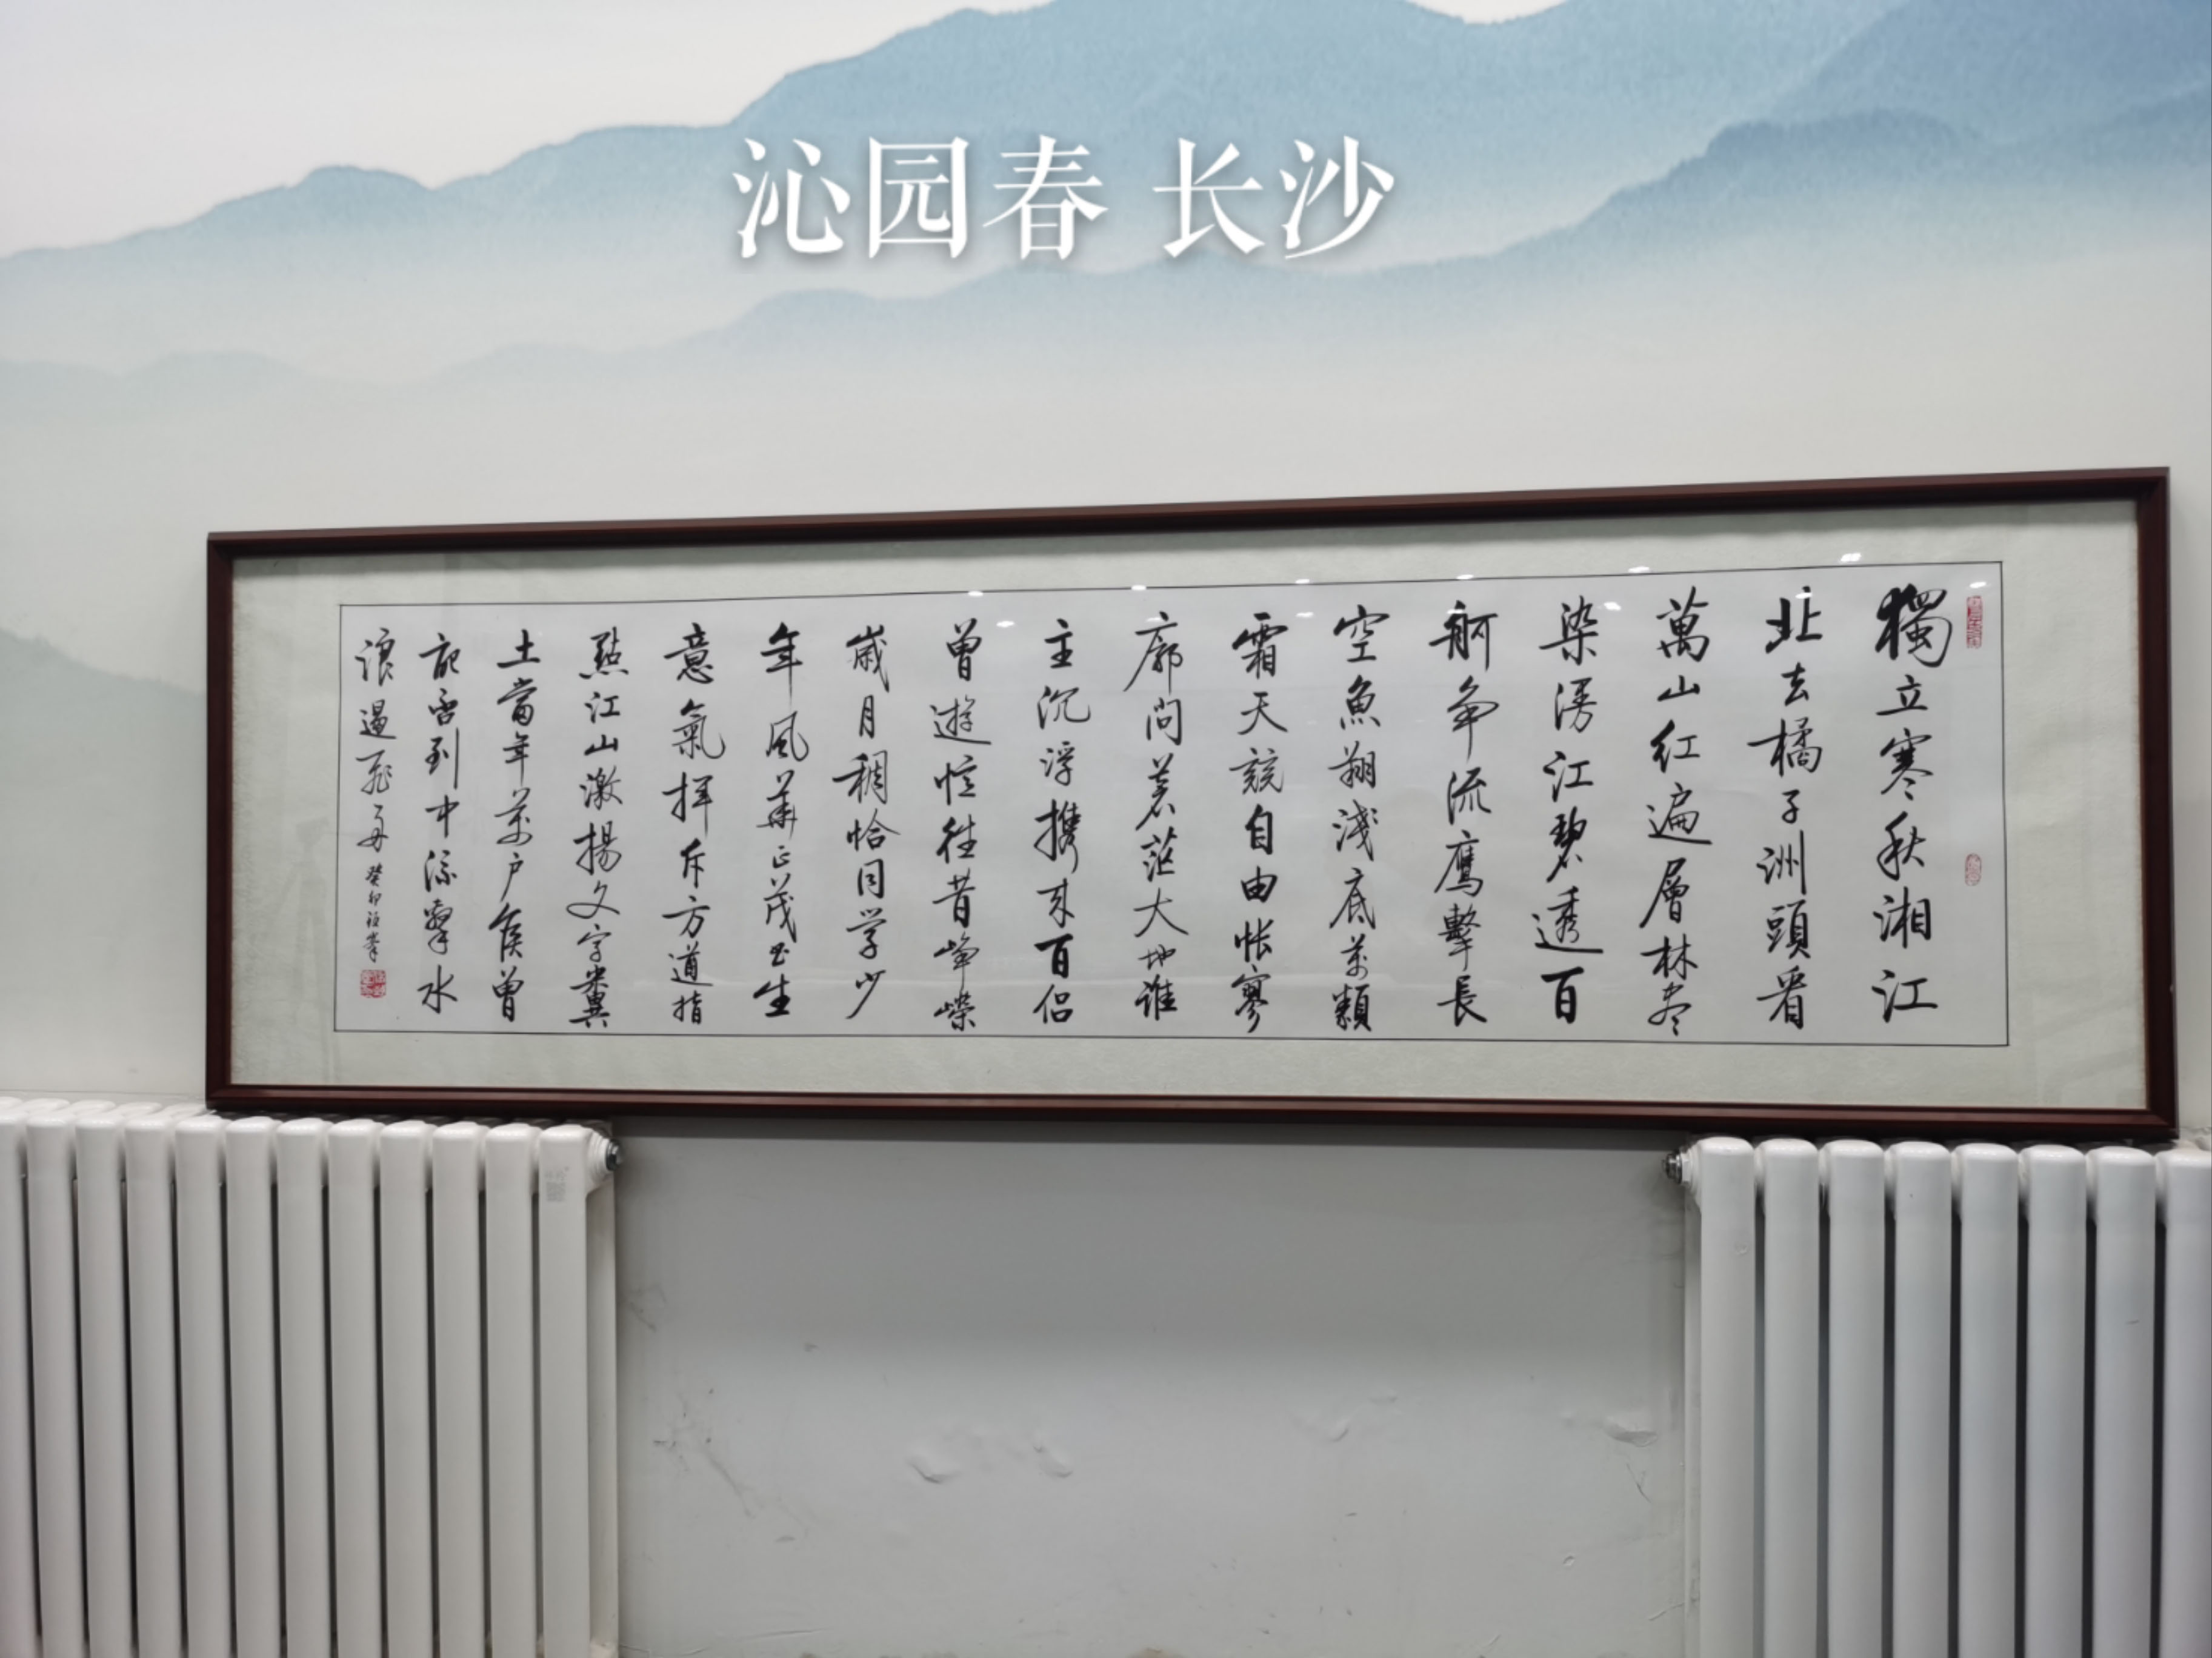 沁园春 长沙
獨立寒秋湘江
北去橘子洲頭看
萬山红遍層林尽
染漫江碧透百
舸争流鹰擊長
空魚翔淺底萬類
霜天競自由怅寥
廓问苍茫大地谁
主沉浮携来百侣
曾遊忆往昔峥嵘
歲月稠恰同学少
年風華正茂书生
意氣挥斥方遒指
點江山激揚文字糞
土當年萬户侯曾
記否到中流擊水
浪遏飛舟 癸卯